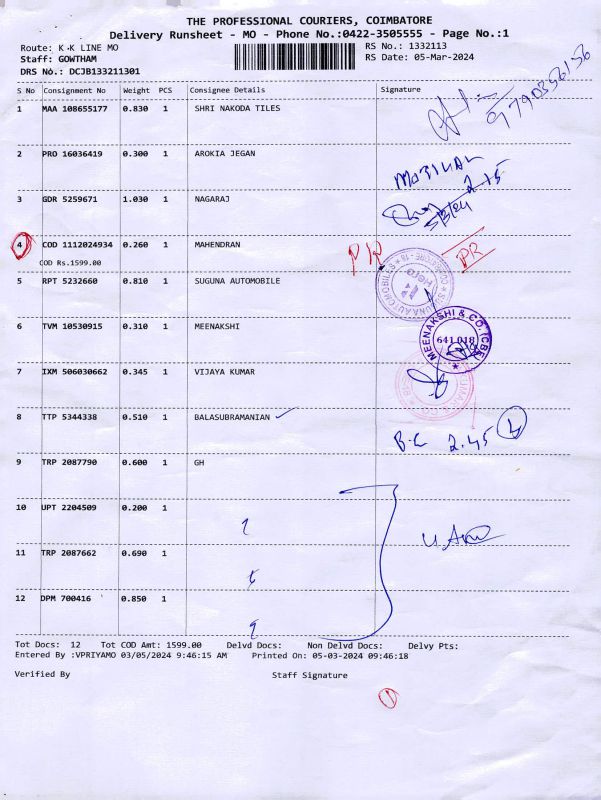 THE PROFESSIONAL COURIERS, COIMBATORE
Delivery Runsheet - MO - Phone No.:0422-3505555 - Page No.:1
Route: K K LINE MO RS No.: 1332113
Staff: GOWTHAM RS Date: 05-Mar-2024
DRS No.: DCJB133211301
S No Consignment No Weight PCS Consignee Details Signature
1 MAA 108655177 0.830 1 SHRI NAKODA TILES
9790356156
2 PRO 16036419 0.300 1 AROKIA JEGAN
MOTILAL
2.15
3 GDR 5259671 1.030 1 NAGARAJ
5/3/24
4 COD 1112024934 0.260 1 MAHENDRAN
PR PR
COD Rs.1599.00
5 RPT 5232660 0.810 1 SUGUNA AUTOMOBILE
SUGUNA AUTOMOBILES
Hero
6 TVM 10530915 0.310 1 MEENAKSHI
MEENAKSHI & CO. (CBE)
641 018
7 IXM 506030662 0.345 1 VIJAYA KUMAR
8 TTP 5344338 0.510 1 BALASUBRAMANIAN
2.45
9 TRP 2087790 0.600 1 GH
10 UPT 2204509 0.200 1
11 TRP 2087662 0.690 1
12 DPM 700416 0.850 1
Tot Docs: 12 Tot COD Amt: 1599.00 Delvd Docs: Non Delvd Docs: Delvy Pts:
Entered By :VPRIYAMO 03/05/2024 9:46:15 AM Printed On: 05-03-2024 09:46:18
Verified By Staff Signature
1